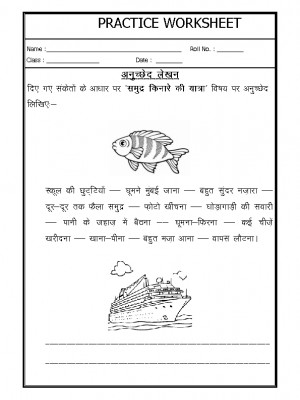 PRACTICE WORKSHEET
Name : Roll No. :
Class : Date :
अनुच्छेद लेखन
दिए गए संकेतों के आधार पर 'समुद्र किनारे की यात्रा' विषय पर अनुच्छेद
लिखिए—
स्कूल की छुट्टियों — घूमने मुंबई जाना — बहुत सुंदर नजारा —
दूर-दूर तक फैला समुद्र — फोटो खींचना — घोड़ागाड़ी की सवारी
— पानी के जहाज में बैठना — घूमना-फिरना — कई चीजें
खरीदना — खाना-पीना — बहुत मजा आना — वापस लौटना।